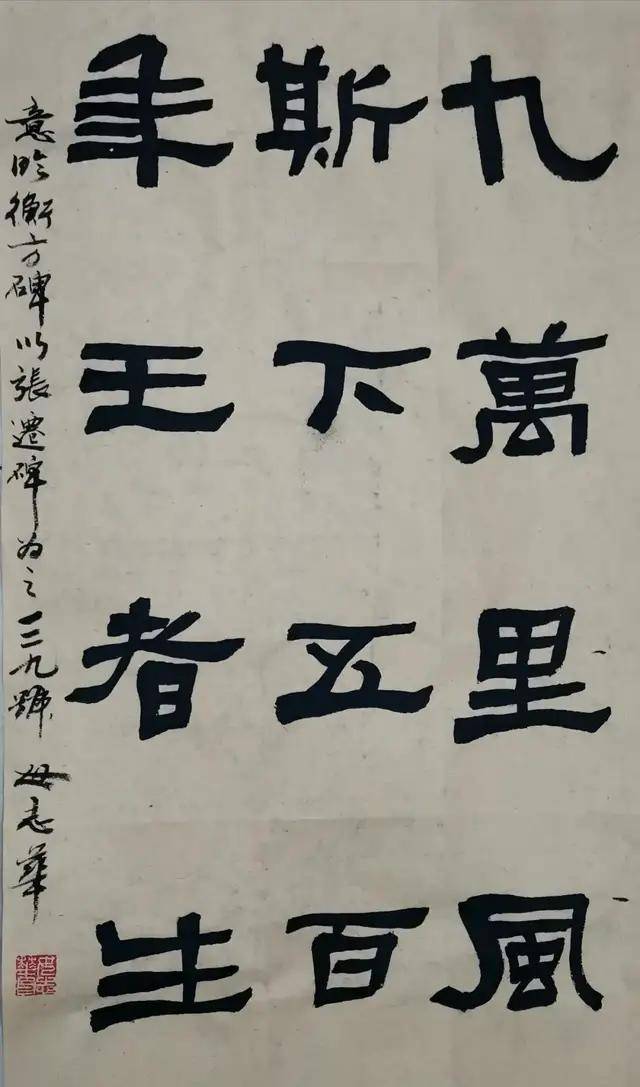 九萬里風
斯下五百
年王者生
意臨衡方碑以張遷碑为之一三九號 毋志華